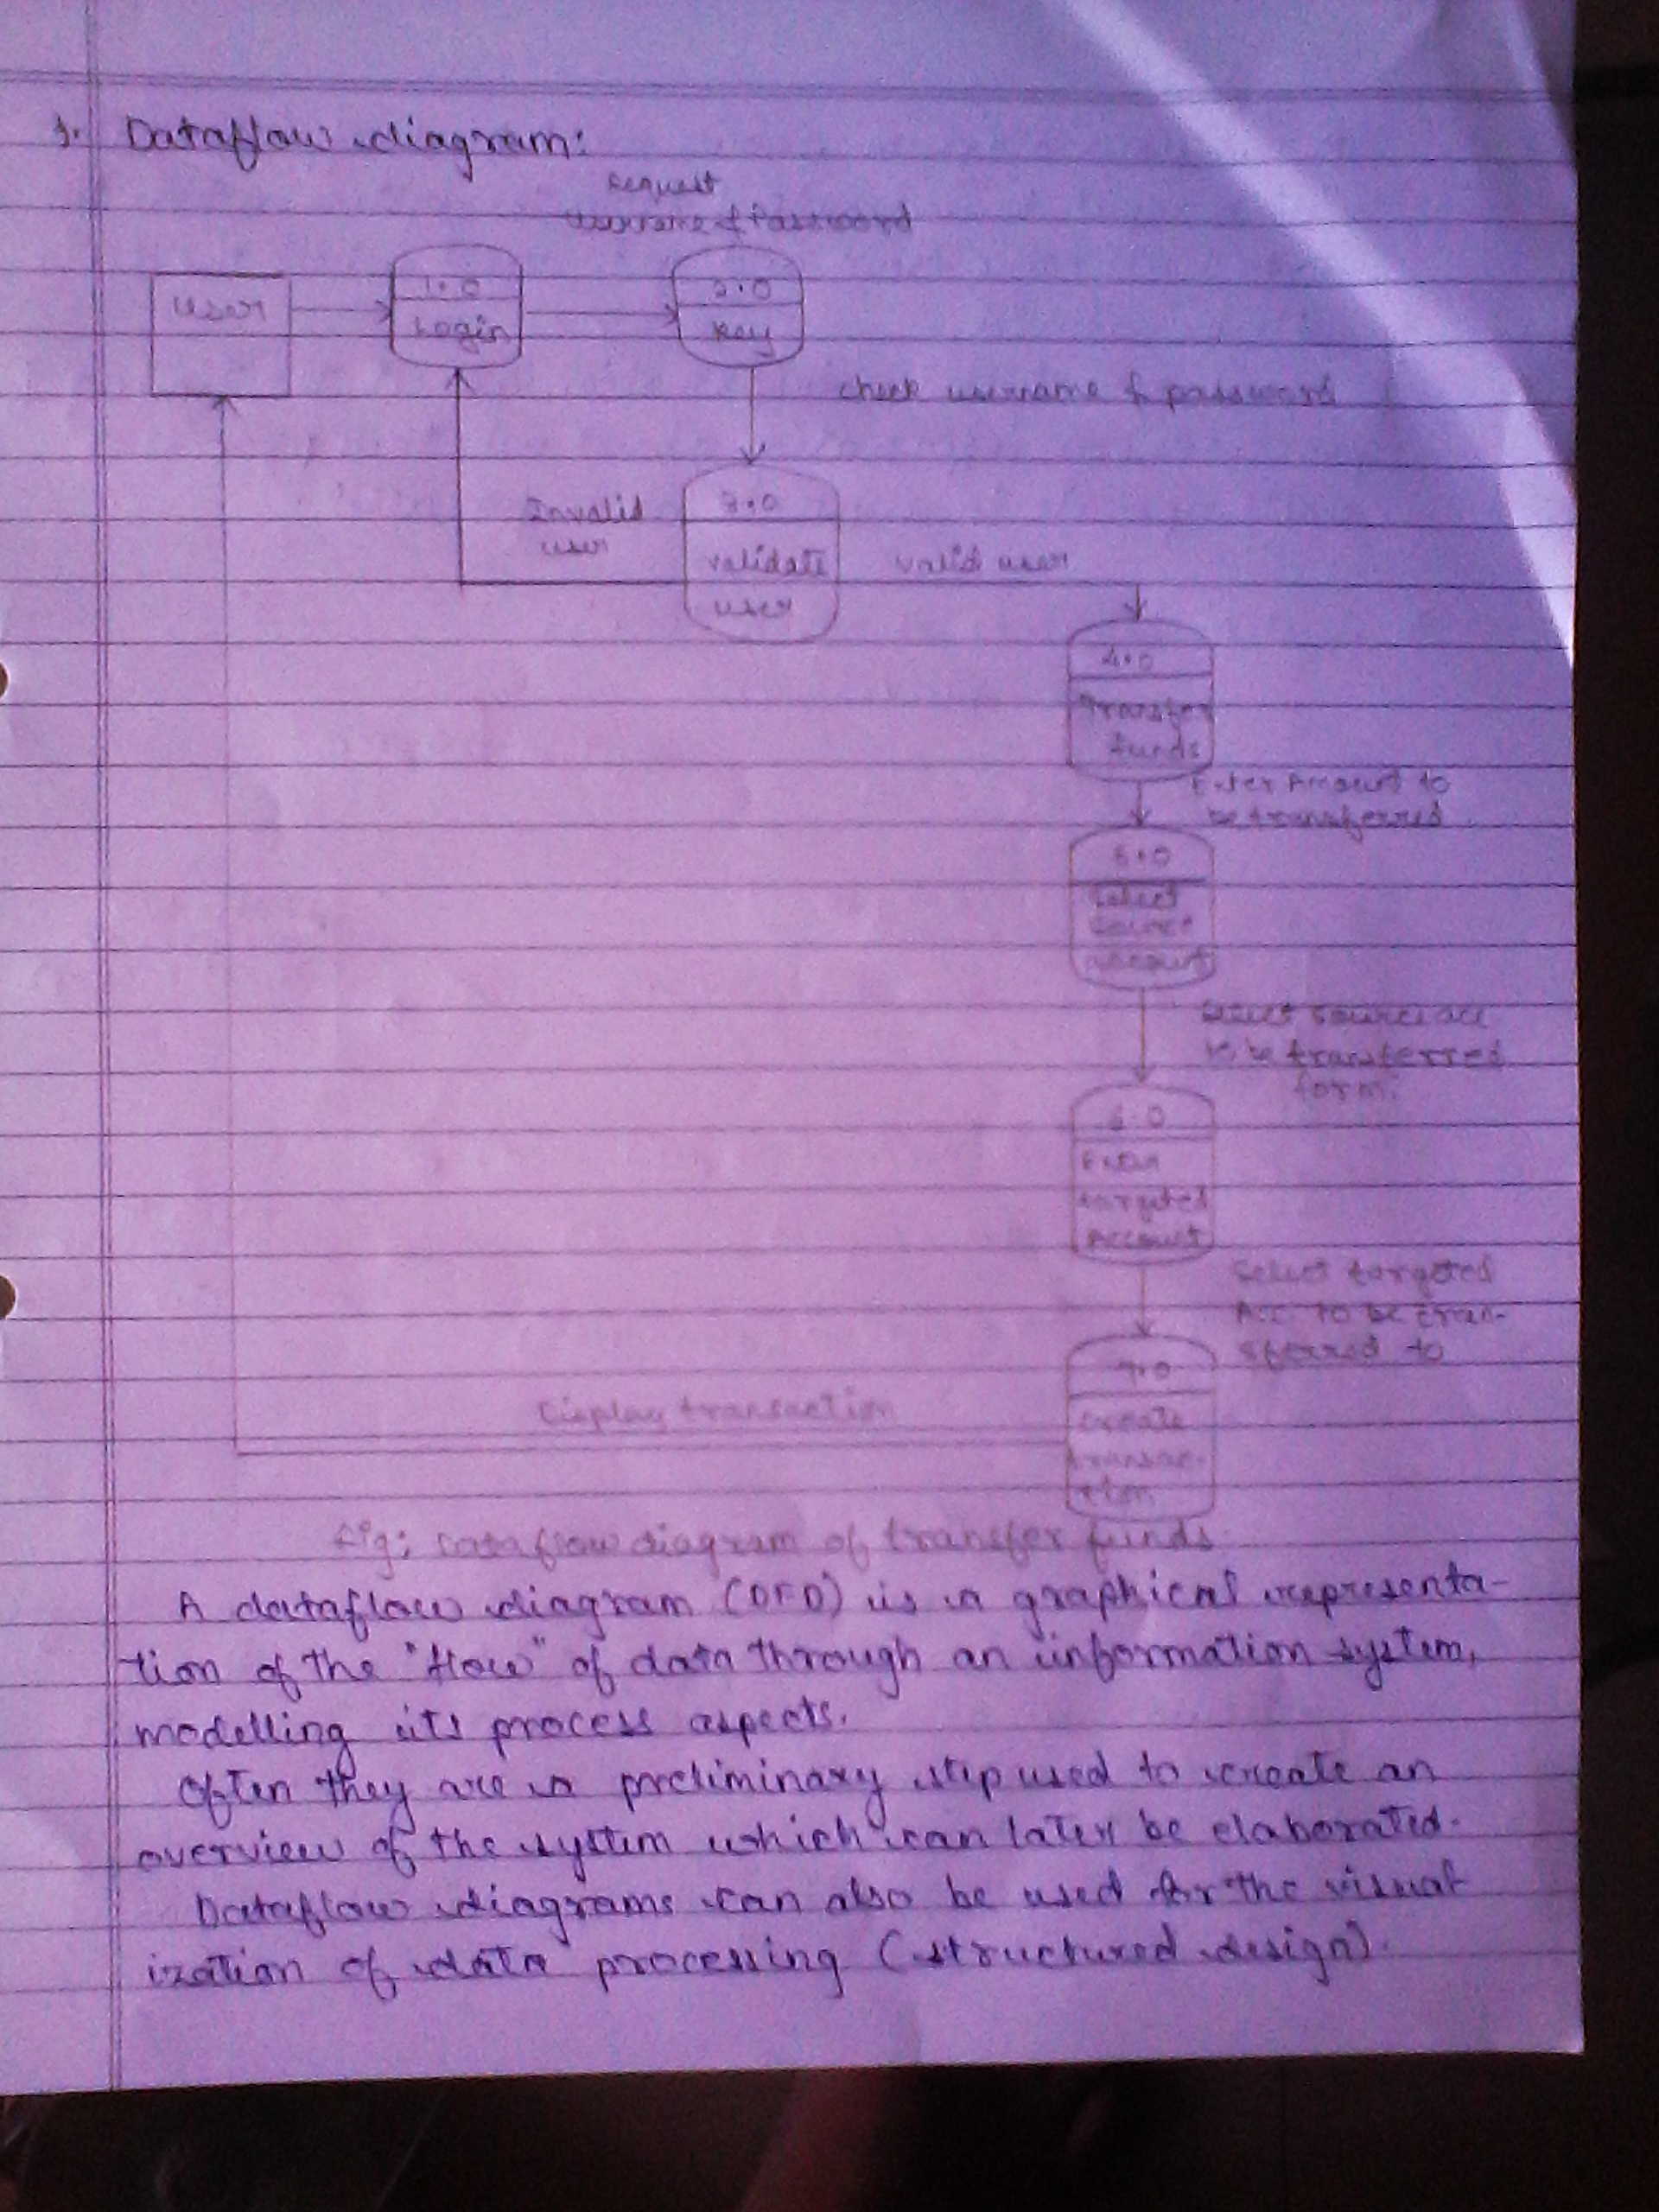 1. Dataflow diagram:
request
Username & Password
User
1.0
Login
2.0
Key
check username & password
Invalid
user
3.0
validate
user
valid user
4.0
Transfer
funds
Enter Amount to
be transferred
5.0
Select
Source
account
Select source acc
to be transferred
form.
6.0
Enter
targeted
Account
Select targeted
Acc. to be tran-
sferred to
7.0
Create
transac-
tion
Display transaction
fig: Dataflow diagram of transfer funds
A dataflow diagram (DFD) is a graphical representa-
tion of the "flow" of data through an information system,
modelling its process aspects.
Often they are a preliminary step used to create an
overview of the system which can later be elaborated.
Dataflow diagrams can also be used for the visual
ization of data processing (structured design).